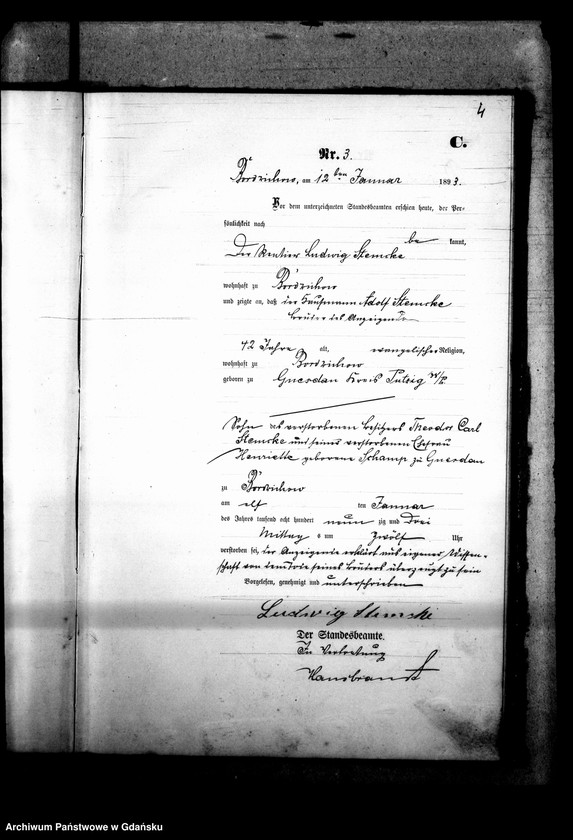 4
C.
Nr. 3.
Bordzichow, am 12ten Januar 1893.
Vor dem unterzeichneten Standesbeamten erschien heute, der Per-
sönlichkeit nach
be kannt,
Der Rentier Ludwig Stemcke
wohnhaft zu Bordzichow
und zeigte an, daß der Kaufmann Adolf Stemcke
Bruder des Anzeigenden
42 Jahre alt, evangelischer Religion,
wohnhaft zu Bordzichow
geboren zu Kreis Putzig W/P.
Sohn des verstorbenen Besitzers Theodor Carl
Stemcke und seiner verstorbenen Ehefrau
Henriette geborene Schamp zu
zu Bordzichow
am elf ten Januar
des Jahrs tausend acht hundert neun zig und drei
Mittags um zwölf Uhr
verstorben sei, der Anzeigende erklärt aus eigener Wissen-
schaft von dem Tode seines Bruders überzeugt zu sein
Vorgelesen, genehmigt und unterschrieben
Ludwig Stemcke
Der Standesbeamte.
In Vertretung
Archiwum Państwowe w Gdańsku